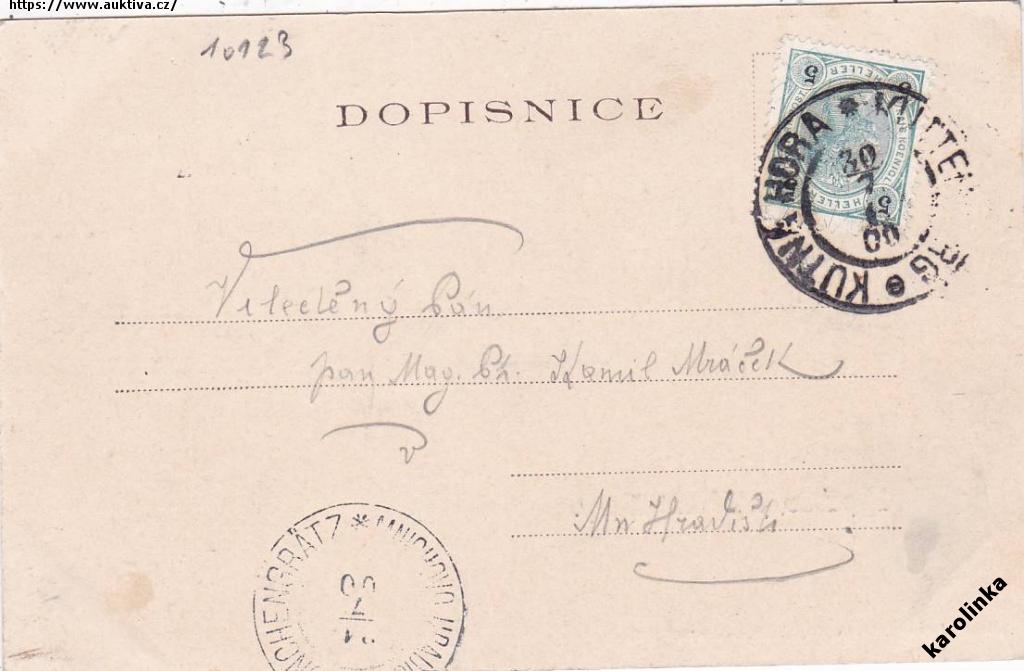 https://www.auktiva.cz/
10123
DOPISNICE
5 HELLER
HELLER 5
KUTNÁ HORA * KUTTENBERG *
30
7
00
Velectěný Pán
pan Mag. Ph. Kamil Mráček
v
Mn Hradišti
MNICHOVO HRADIŠ
NCHENGRÄTZ *
7
00
karolinka